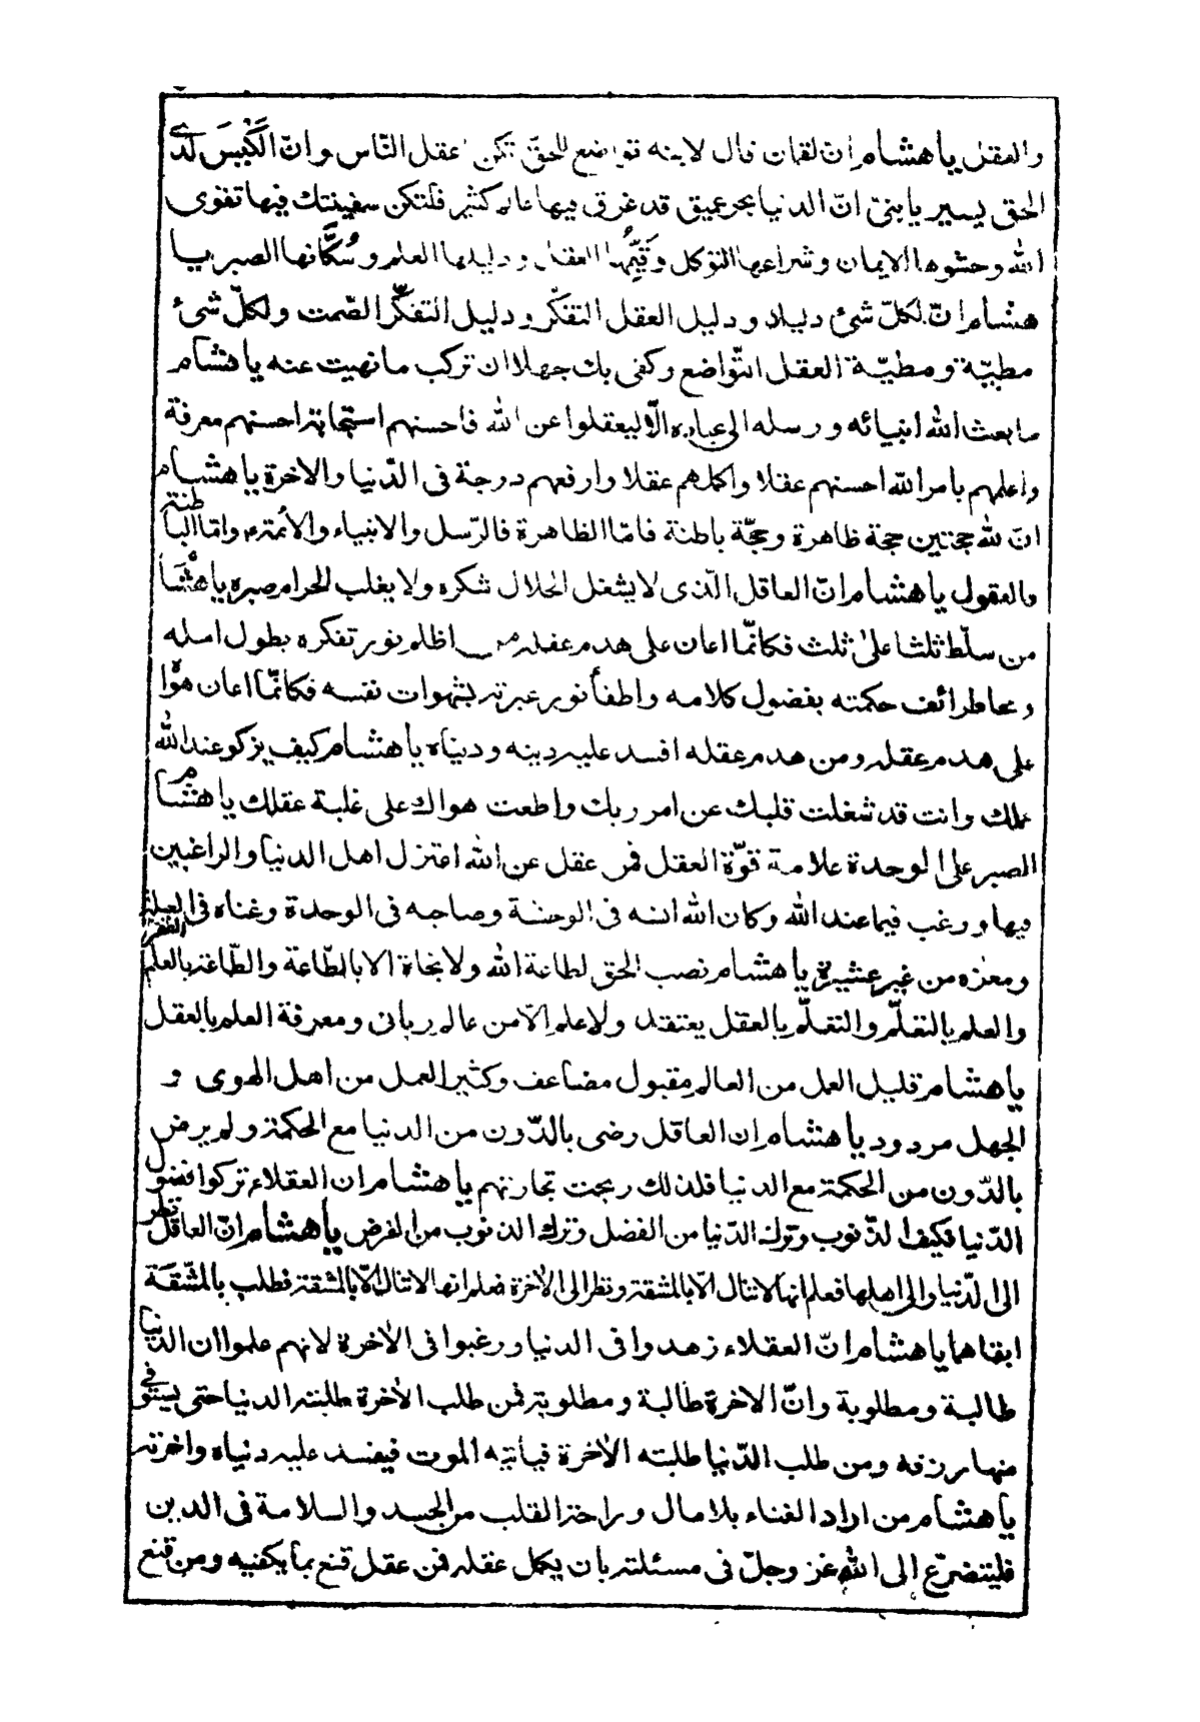 والعقل يا هشام ان لقمان قال لابنه تواضع للحق تكن اعقل النّاس وانّ الكَيّسَ لدى
الحق يسير يا بنىّ انّ الدنيا بحر عميق قد غرق فيها عالم كثير فلتكن سفينتك فيها تقوى
الله وحشوها الايمان وشراعها التوكل وقَيِّمُها العقل ودليلها العلم وسُكّانها الصبر يا
هشام انّ لكلّ شئ دليلا ودليل العقل التفكّر ودليل التفكّر الصّمت ولكلّ شئ
مطيّة ومطيّة العقل التّواضع وكفى بك جهلا ان تركب ما نهيت عنه يا هشام
ما بعث الله انبيائه ورسله الى عباده الّا ليعقلوا عن الله فاحسنهم استجابة احسنهم معرفة
واعلمهم بامر الله احسنهم عقلا واكملهم عقلا وارفعهم درجة فى الدّنيا والاخرة يا هشام
انّ لله حجتين حجة ظاهرة وحجّة باطنة فامّا الظاهرة فالرّسل والانبياء والأئمة وامّا الباطنة
فالعقول يا هشام انّ العاقل الّذى لا يشغل الحلال شكره ولا يغلب الحرام صبره يا هشام
من سلّط ثلثا على ثلث فكانّما اعان على هدم عقله من اظلم نور تفكره بطول امله
ومحا طرائف حكمته بفضول كلامه واطفأ نور عبرته بشهوات نفسه فكانّما اعان هواه
على هدم عقله ومن هدم عقله افسد عليه دينه ودنياه يا هشام كيف يزكو عند الله
عملك وانت قد شغلت قلبك عن امر ربك واطعت هواك على غلبة عقلك يا هشام
الصبر على الوحدة علامة قوّة العقل فمن عقل عن الله اعتزل اهل الدنيا والراغبين
فيها ورغب فيما عند الله وكان الله انسه فى الوحشة وصاحبه فى الوحدة وغناه فى العيلة
الفقر
ومعزه من غير عشيرة يا هشام نصب الحق لطاعة الله ولا نجاة الا بالطّاعة والطّاعة بالعلم
والعلم بالتعلّم والتعلّم بالعقل يعتقد ولا علم الّا من عالم ربانى ومعرفة العلم بالعقل
يا هشام قليل العمل من العالم مقبول مضاعف وكثير العمل من اهل الهوى و
الجهل مردود يا هشام ان العاقل رضى بالدّون من الدنيا مع الحكمة ولم يرض
بالدّون من الحكمة مع الدنيا فلذلك ربحت تجارتهم يا هشام ان العقلاء تركوا فضول
الدّنيا فكيف الذّنوب وترك الدّنيا من الفضل وترك الذنوب من الفرض يا هشام انّ العاقل نظر
الى الدّنيا والى اهلها فعلم انها لا تنال الّا بالمشقة ونظر الى الاخرة فعلم انها لا تنال الّا بالمشقة فطلب بالمشقة
ابقاهما يا هشام انّ العقلاء زهدوا فى الدنيا ورغبوا فى الاخرة لانهم علموا ان الدنيا
طالبة ومطلوبة وانّ الاخرة طالبة ومطلوبة فمن طلب الاخرة طلبته الدنيا حتى يستوفى
منها رزقه ومن طلب الدّنيا طلبته الاخرة فياتيه الموت فيفسد عليه دنياه واخرته
يا هشام من اراد الغناء بلا مال وراحة القلب من الجسد والسلامة فى الدين
فليتضرّع الى الله عز وجلّ فى مسئلته بان يكمل عقله فمن عقل قنع بما يكفيه ومن قنع